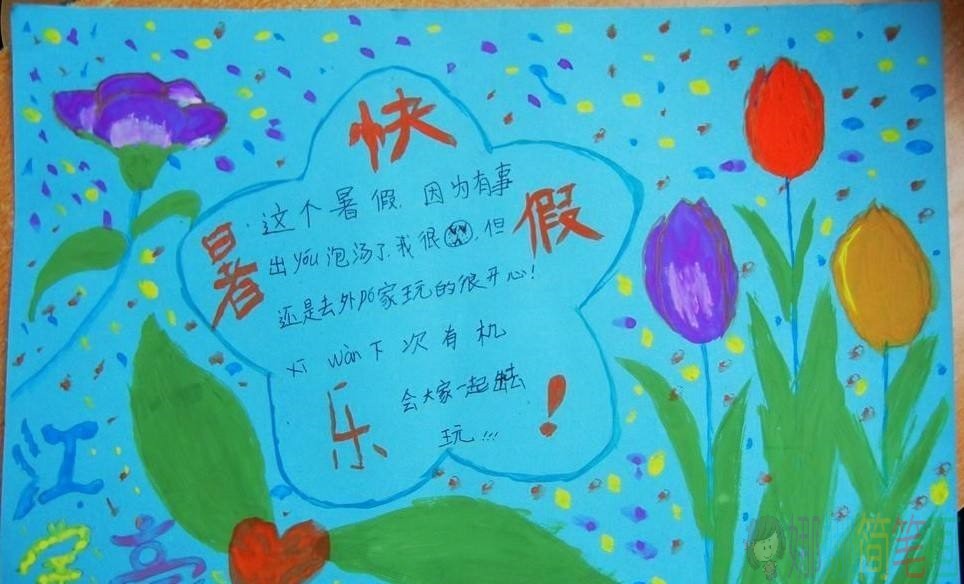 快
暑
假
乐
!
这个暑假,因为有事
出you泡汤了,我很,但
还是去外po家玩的很开心!
xī wàn下次有机
会大家一起出去
玩!!!
江
亭
简笔